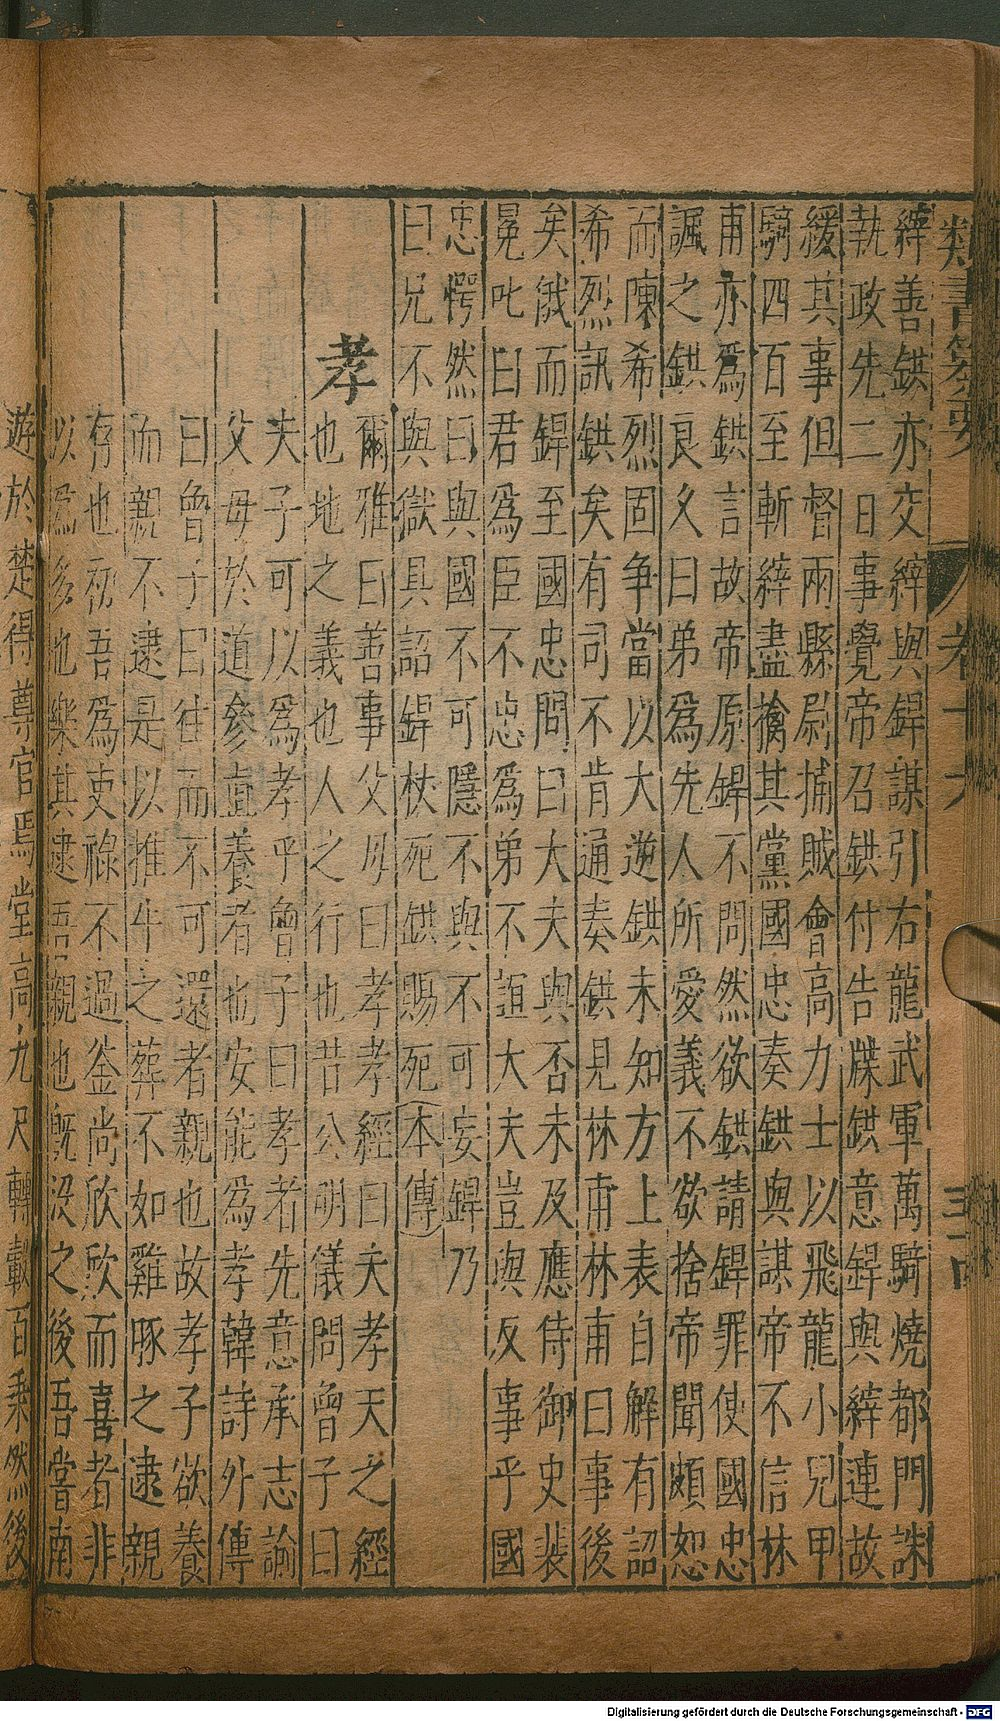 類書纂要 卷十六
縡善鉷亦交縡與銲謀引右龍武軍萬騎燒都門誅
執政先二日事覺帝召鉷付告牒鉷意銲與縡連故
緩其事但督兩縣尉捕賊會高力士以飛龍小兒甲
騎四百至斬縡盡擒其黨國忠奏鉷與謀帝不信林
甫亦爲鉷言故帝原銲不問然欲鉷請銲罪使國忠
諷之鉷良久曰弟爲先人所愛義不欲捨帝聞頗恕
而陳希烈固争當以大逆鉷未知方上表自解有詔
希烈訊鉷矣有司不肯通奏鉷見林甫林甫曰事後
矣俄而銲至國忠問曰大夫與否未及應侍御史裴
冕叱曰君爲臣不忠爲弟不誼大夫豈與反事乎國
忠愕然曰與國不可隱不與不可妄銲乃
曰兄不與獄具詔銲杖死鉷賜死(本傳)
孝
爾雅曰善事父母曰孝孝經曰夫孝天之經
也地之義也人之行也昔公明儀問曾子曰
夫子可以爲孝乎曾子曰孝者先意承志諭
父母於道參直養者也安能爲孝韓詩外傳
曰曾子曰往而不可還者親也故孝子欲養
而親不逮是以推牛之葬不如雞豚之逮親
存也初吾爲吏祿不過釜尚欣欣而喜者非
以爲多也樂其逮吾親也旣沒之後吾嘗南
遊於楚得尊官焉堂高九尺轉轂百乘然後
Digitalisierung gefördert durch die Deutsche Forschungsgemeinschaft - DFG